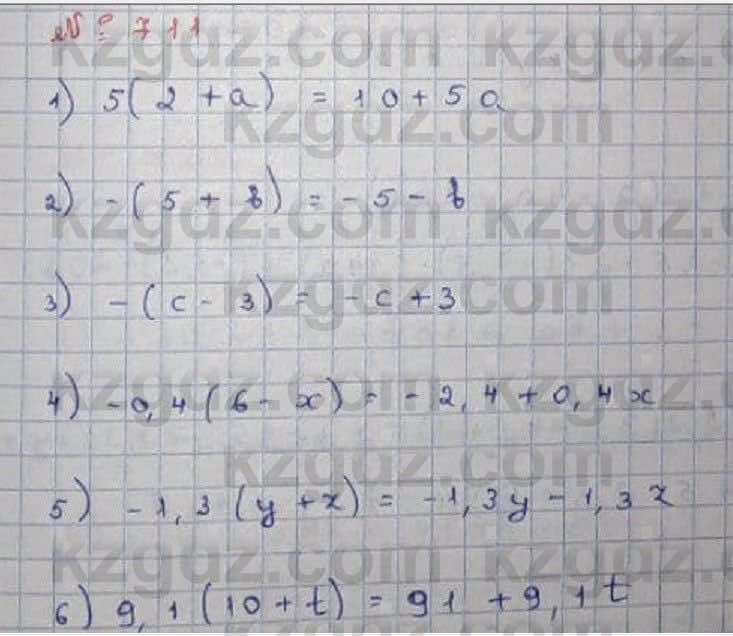 № 711
1) 5(2 + a) = 10 + 5a
2) -(5 + b) = -5 - b
3) -(c - 3) = -c + 3
4) -0,4(6 - x) = -2,4 + 0,4x
5) -1,3(y + z) = -1,3y - 1,3z
6) 9,1(10 + t) = 91 + 9,1t
kzgdz.com
kzgdz.com
kzgdz.com kzgdz.com
kzgdz.com
kzgdz.com kzgdz.com
kzgdz.com
kzgdz.com kzgdz.com